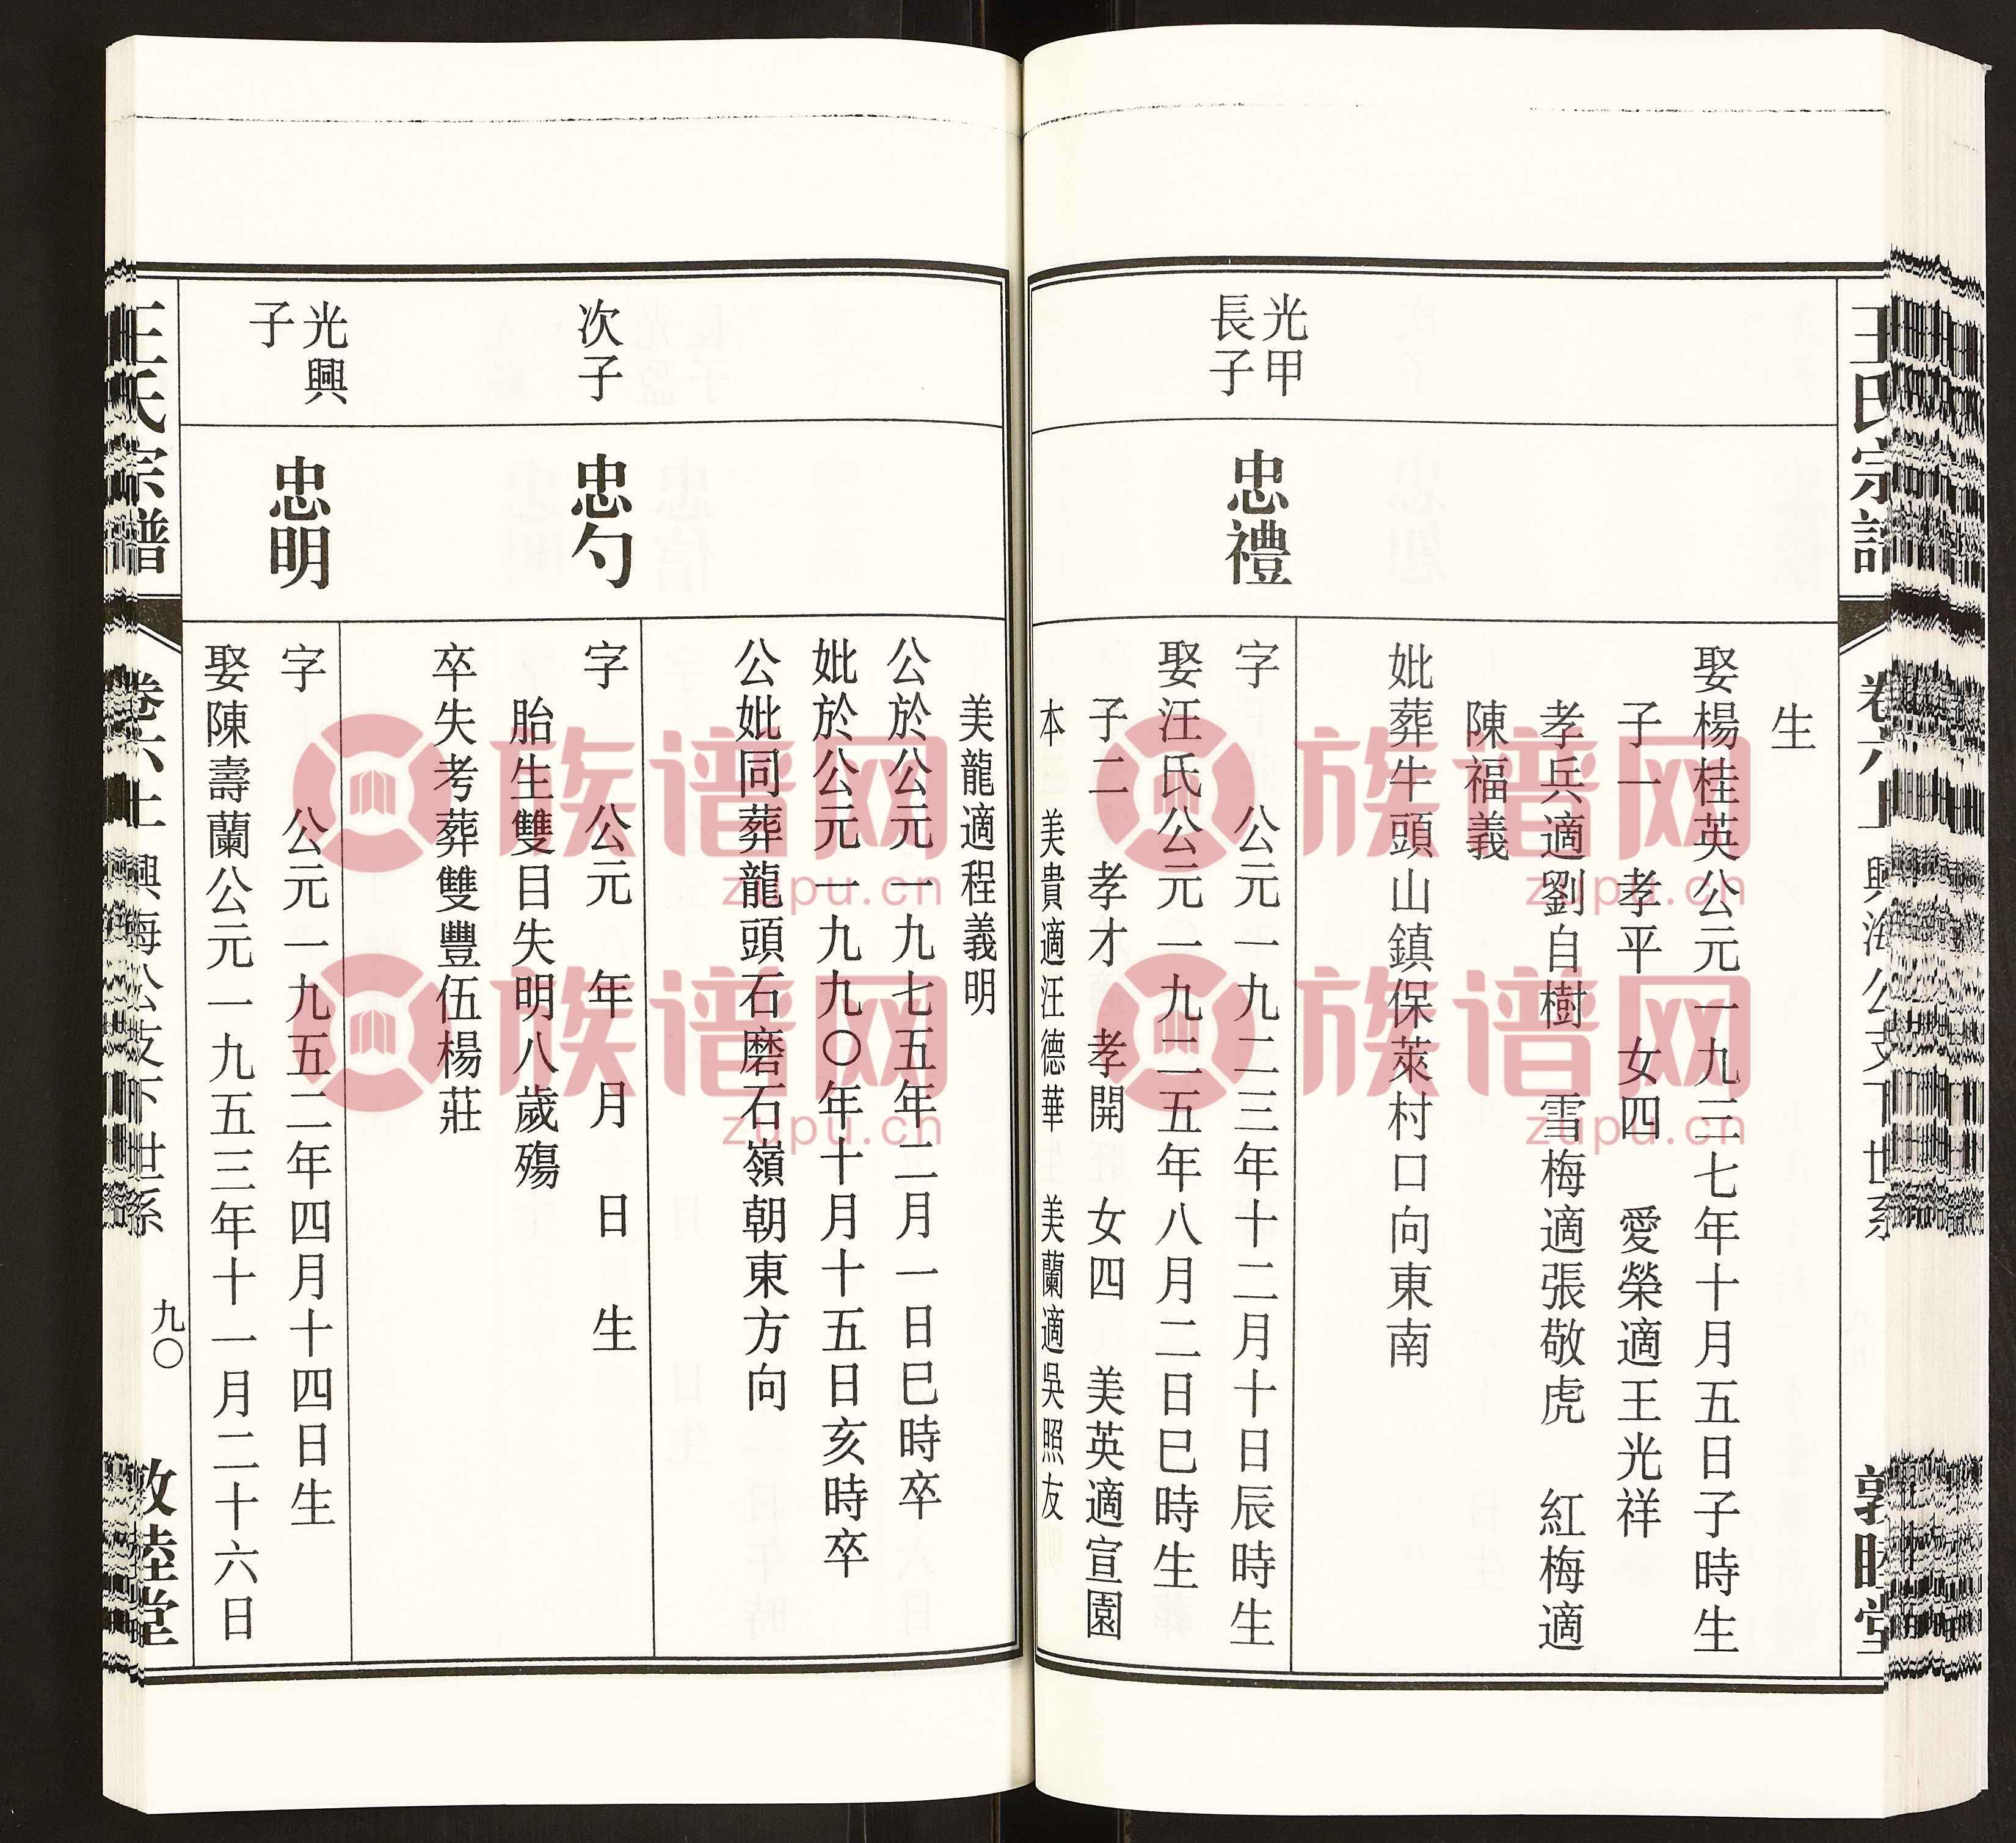 王氏宗譜
卷六上
興海公支下世系
敦睦堂
生
娶楊桂英公元一九三七年十月五日子時生
子一 孝平 女四 愛榮適王光祥
孝兵適劉自樹 雪梅適張敬虎 紅梅適
陳福義
妣葬牛頭山鎮保萊村口向東南
光甲
長子
忠禮
字 公元一九二三年十二月十日辰時生
娶汪氏公元一九二五年八月二日巳時生
子二 孝才 孝開 女四 美英適宣園
本 美貴適汪德華 美蘭適吳照友
美龍適程義明
公於公元一九七五年二月一日巳時卒
妣於公元一九九〇年十月十五日亥時卒
公妣同葬龍頭石磨石嶺朝東方向
次子
忠勺
字 公元 年 月 日 生
胎生雙目失明八歲殤
卒失考葬雙豐伍楊莊
光興
子
忠明
字 公元一九五二年四月十四日生
娶陳壽蘭公元一九五三年十一月二十六日
王氏宗譜
卷六上
興海公支下世系
九〇
敦睦堂
族谱网
zupu.cn
族谱网
zupu.cn
族谱网
zupu.cn
族谱网
zupu.cn